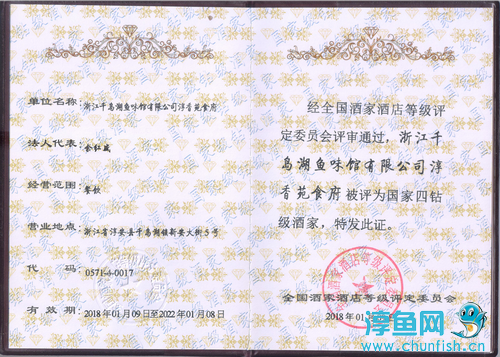 单位名称:浙江千岛湖鱼味馆有限公司淳香苑食府
法人代表:余红威
经营范围:餐饮
营业地点:浙江省淳安县千岛湖镇新安大街5号
代 码:0571-4-0017
有 效 期:2018年01月09日至2022年01月08日
经全国酒家酒店等级评
定委员会评审通过,浙江千
岛湖鱼味馆有限公司淳
香苑食府被评为国家四钻
级酒家,特发此证。
全国酒家酒店等级评定委员会
2018年01月
淳鱼网
www.chunfish.cn